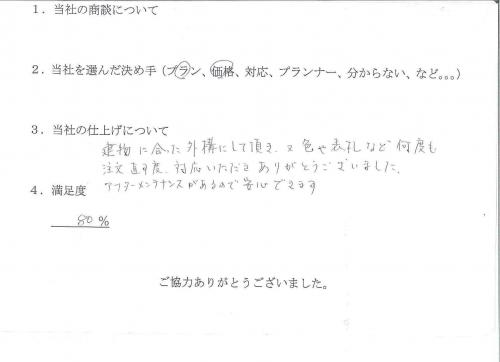 1．当社の商談について
2．当社を選んだ決め手（プラン、価格、対応、プランナー、分からない、など。。。）
3．当社の仕上げについて
建物に合った外構にして頂き、又色や表札など何度も
注文直す度、対応いただきありがとうございました。
アフターメンテナンスがあるので安心できます
4．満足度
80％
ご協力ありがとうございました。